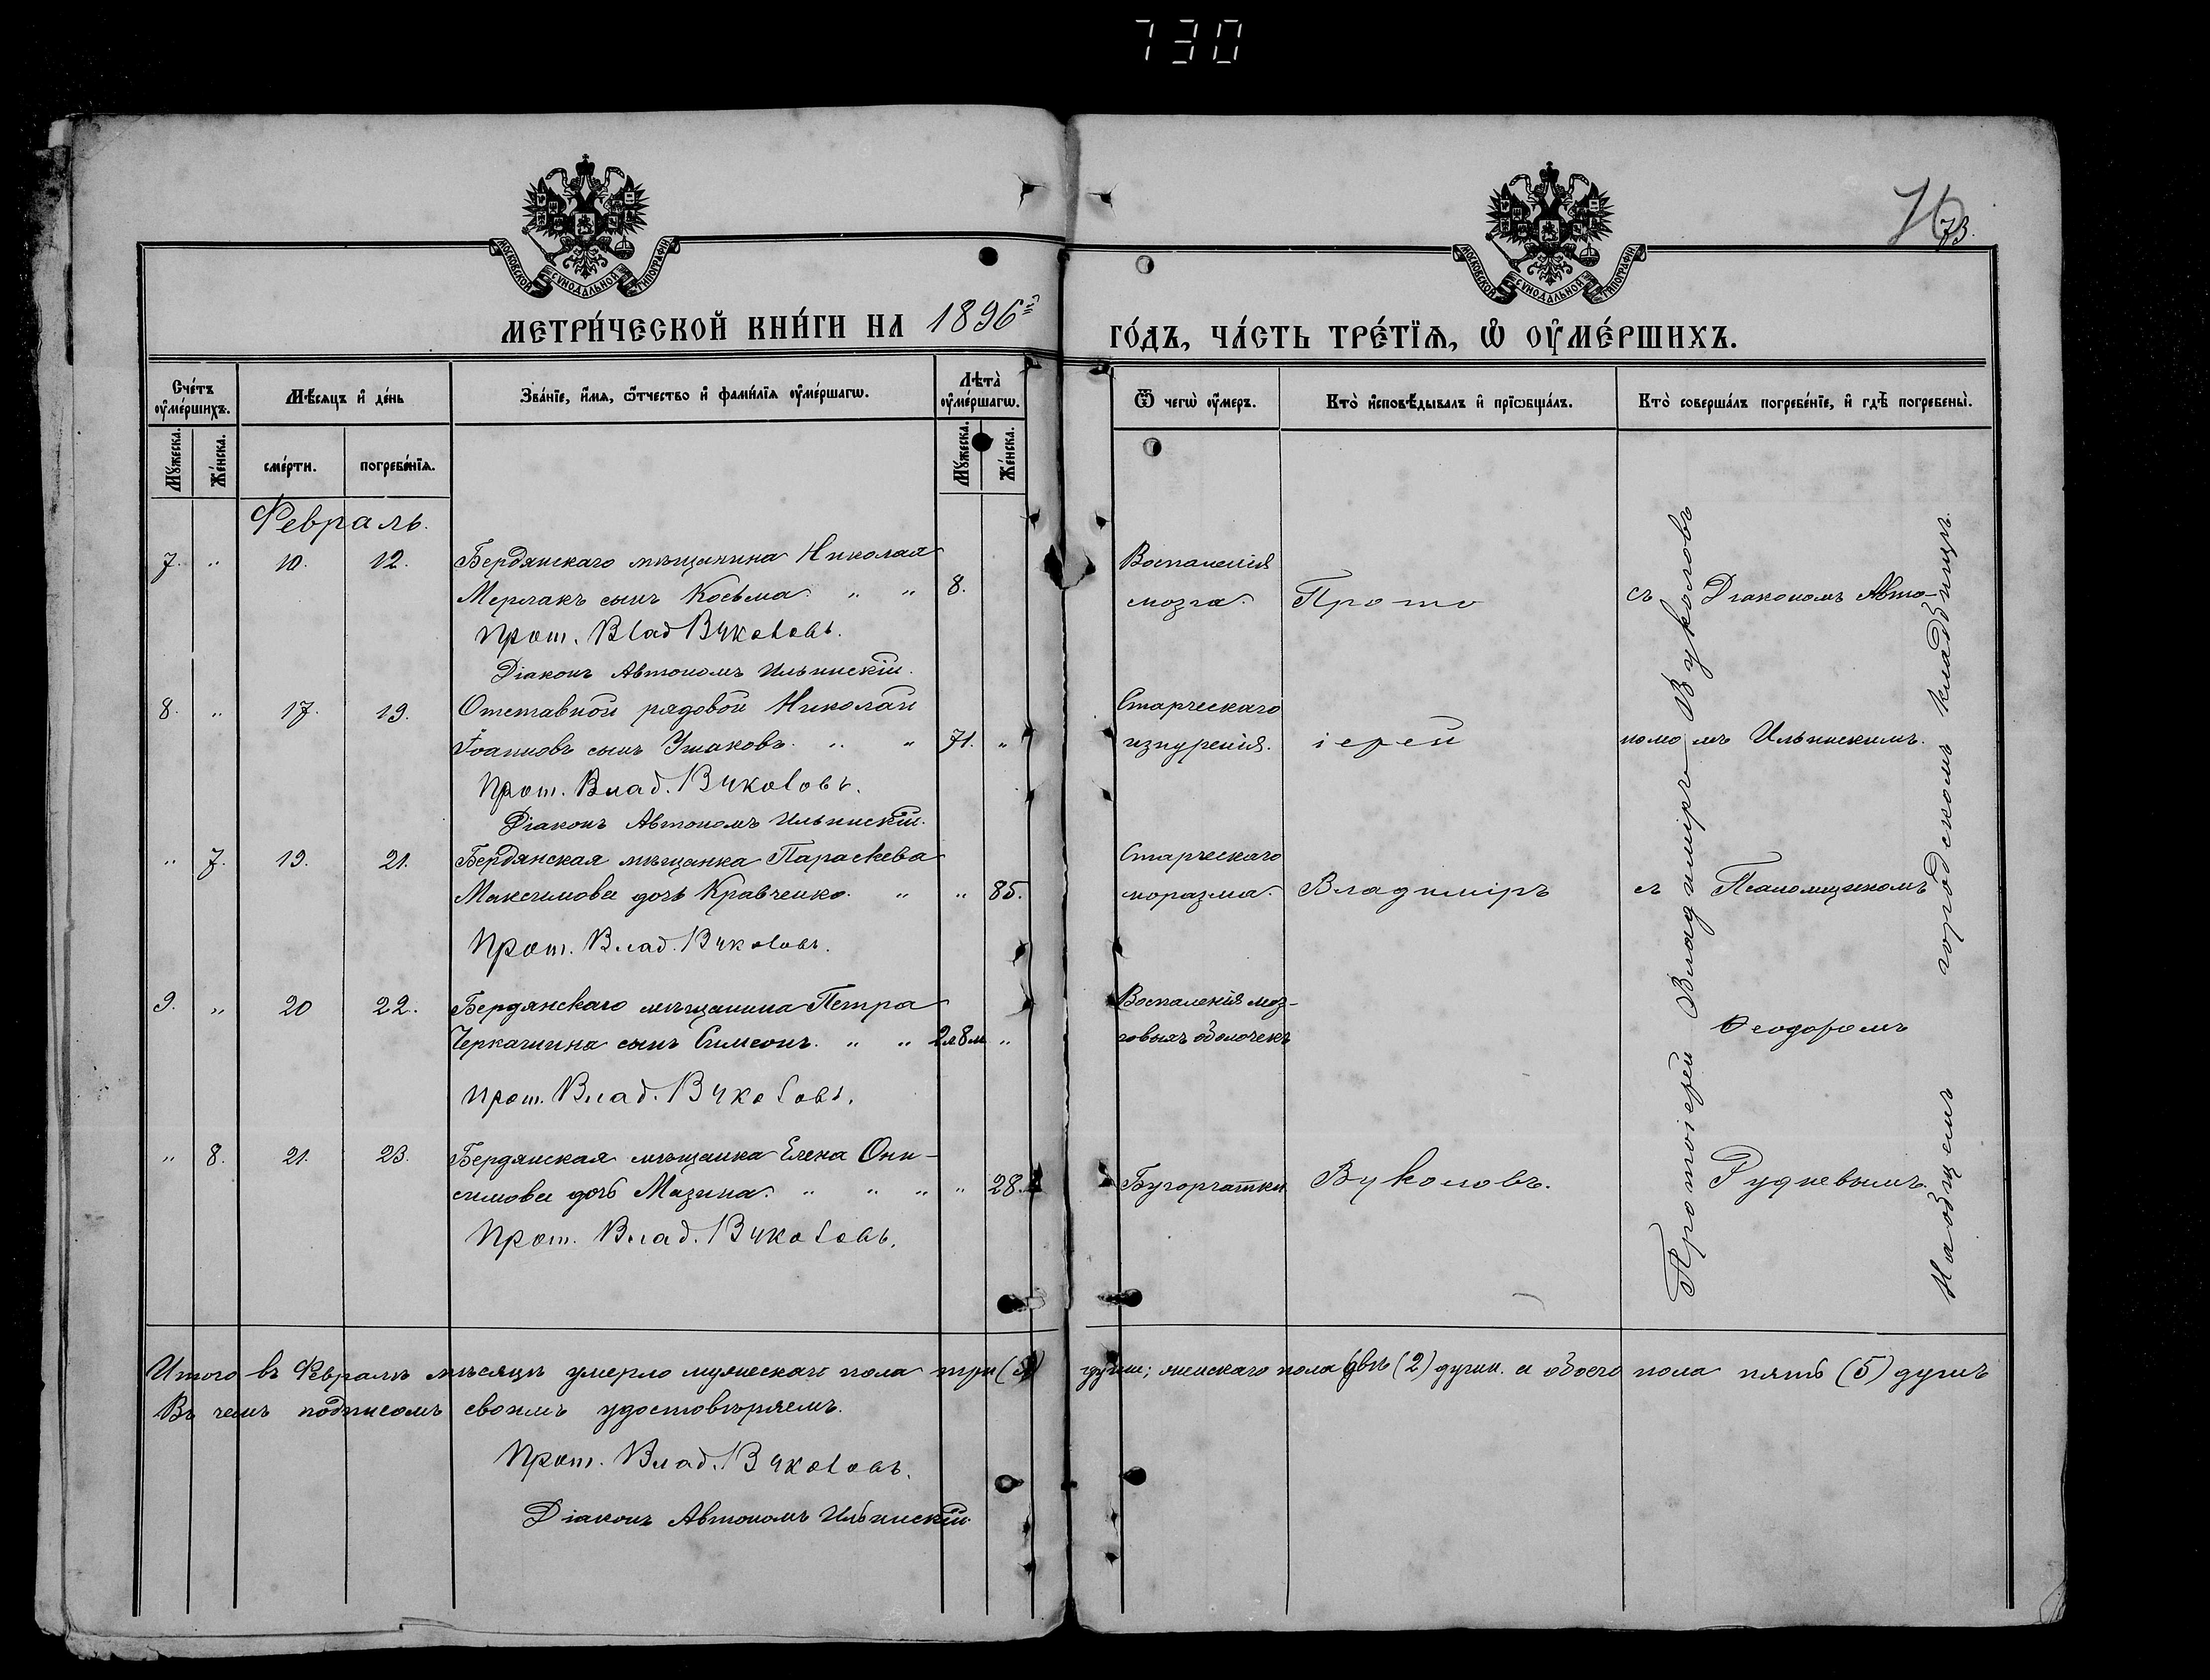 730
МОСКОВСКОЙ СУНОДАЛЬНОЙ ТИПОГРАФІИ
МОСКОВСКОЙ СУНОДАЛЬНОЙ ТИПОГРАФІИ
73.
МЕТРИ́ЧЕСКОЙ КНИ́ГИ НА 1896й ГО́ДЪ, ЧА́СТЬ ТРЕ́ТЇѦ, Ѽ ОУ҆МЕ́РШИХЪ.
Сче́тъ оу҆ме́ршихъ.
Мѣ́сяцъ и҆ де́нь
Зва́нїе, и҆́мя, ѻ҆́тчество и҆ фами́лїя оу҆ме́ршагѡ.
Лѣта̀ оу҆ме́ршагѡ.
Ѿ чегѡ̀ оу҆́меръ.
Кто̀ и҆сповѣ́дывалъ и҆ прїѡбща́лъ.
Кто̀ соверша́лъ погребе́нїе, и҆ гдѣ̀ погребены̀.
Му́жеска. Же́нска. сме́рти. погребе́нїя. Му́жеска. Же́нска.
Февраль.
7. " 10. 12. Бердянскаго мѣщанина Николая Воспаленія
Мерлакъ сынъ Косьма. " " 8. мозга. Прото съ Діакономъ Авто-
Прот. Влад Вуколовъ.
Діаконъ Автономъ Ильинскій.
8. " 17. 19. Отставной рядовой Николай Старческаго
Іоанновъ сынъ Ушаковъ. " " 71. " изнуренія. іерей номомъ Ильинскимъ.
Прот. Влад. Вуколовъ.
Діаконъ Автономъ Ильинскій.
" 7. 19. 21. Бердянская мѣщанка Параскева Старческаго
Максимова дочь Кравченко. " " 85. моразма. Владиміръ съ Псаломщикомъ
Прот. Влад. Вуколовъ.
9. " 20 22. Бердянскаго мѣщанина Петра Воспаленія моз-
Черкашина сынъ Симеонъ. " " 2л8м " говыхъ оболочекъ Ѳеодоромъ
Прот. Влад. Вуколовъ.
" 8. 21. 23. Бердянская мѣщанка Елена Они-
симова дочь Мазина. " " " " 28. Бугорчатки Вуколовъ. Рудневымъ.
Прот. Влад. Вуколовъ.
Протоіерей Владиміръ Вуколовъ
На общемъ городскомъ кладбищѣ.
Итого въ Февралѣ мѣсяцѣ умерло мужескаго пола три (3) души; женскаго пола двѣ (2) души. а обоего пола пять (5) душъ
Въ чемъ подписомъ своимъ удостовѣряемъ.
Прот. Влад. Вуколовъ.
Діаконъ Автономъ Ильинскій.